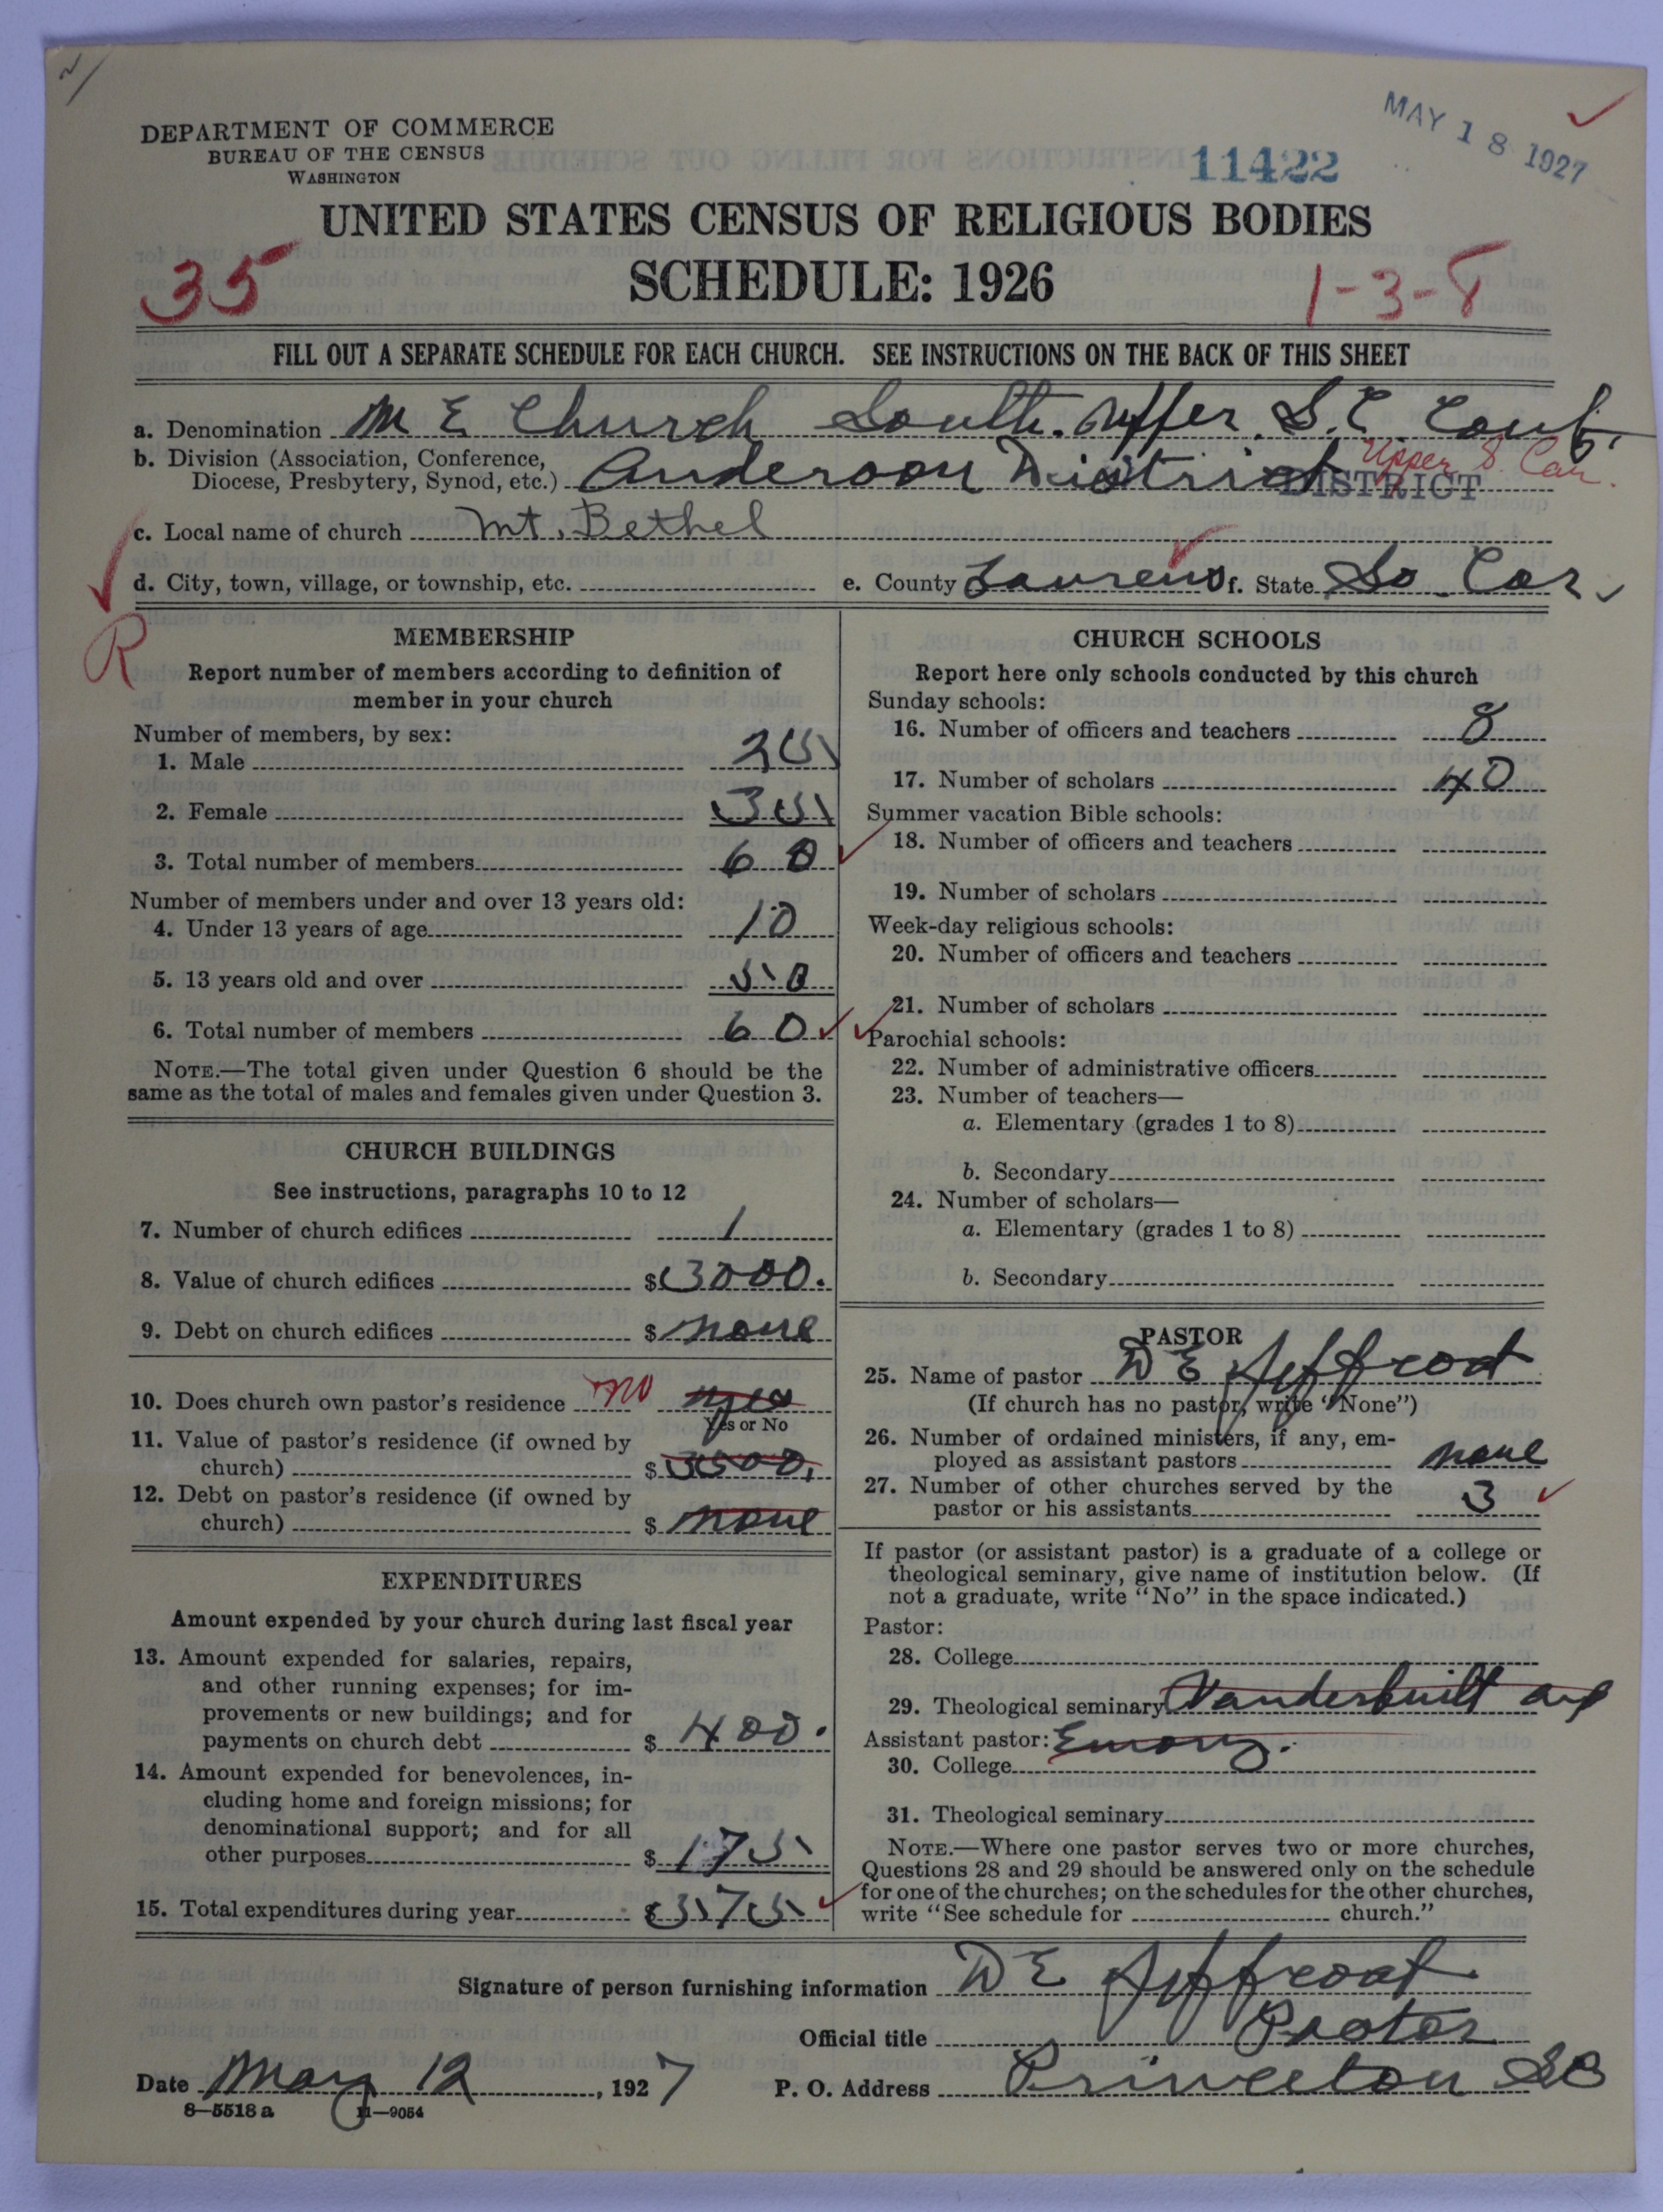 MAY 18 1927
DEPARTMENT OF COMMERCE
BUREAU OF THE CENSUS
WASHINGTON
11422
UNITED STATES CENSUS OF RELIGIOUS BODIES
SCHEDULE: 1926
35
1-3-8
FILL OUT A SEPARATE SCHEDULE FOR EACH CHURCH. SEE INSTRUCTIONS ON THE BACK OF THIS SHEET
a. Denomination M E Church South. Upper S.C. Conf.
b. Division (Association, Conference,
Diocese, Presbytery, Synod, etc.) Anderson District DISTRICT Upper S. Car.
c. Local name of church Mt. Bethel
d. City, town, village, or township, etc. e. County Laurens f. State So. Car.
R
MEMBERSHIP
Report number of members according to definition of
member in your church
Number of members, by sex:
1. Male 25
2. Female 35
3. Total number of members 60
Number of members under and over 13 years old:
4. Under 13 years of age 10
5. 13 years old and over 50
6. Total number of members 60
NOTE.—The total given under Question 6 should be the
same as the total of males and females given under Question 3.
CHURCH BUILDINGS
See instructions, paragraphs 10 to 12
7. Number of church edifices 1
8. Value of church edifices $3000.
9. Debt on church edifices $ none
10. Does church own pastor's residence no yes
Yes or No
11. Value of pastor's residence (if owned by
church) $ 3500.
12. Debt on pastor's residence (if owned by
church) $ none
EXPENDITURES
Amount expended by your church during last fiscal year
13. Amount expended for salaries, repairs,
and other running expenses; for im-
provements or new buildings; and for
payments on church debt $ 400.
14. Amount expended for benevolences, in-
cluding home and foreign missions; for
denominational support; and for all
other purposes $ 175
15. Total expenditures during year $ 575
CHURCH SCHOOLS
Report here only schools conducted by this church
Sunday schools:
16. Number of officers and teachers 8
17. Number of scholars 40
Summer vacation Bible schools:
18. Number of officers and teachers
19. Number of scholars
Week-day religious schools:
20. Number of officers and teachers
21. Number of scholars
Parochial schools:
22. Number of administrative officers
23. Number of teachers—
a. Elementary (grades 1 to 8)
b. Secondary
24. Number of scholars—
a. Elementary (grades 1 to 8)
b. Secondary
PASTOR
25. Name of pastor D E Jeffcoat
(If church has no pastor, write "None")
26. Number of ordained ministers, if any, em-
ployed as assistant pastors none
27. Number of other churches served by the
pastor or his assistants 3
If pastor (or assistant pastor) is a graduate of a college or
theological seminary, give name of institution below. (If
not a graduate, write "No" in the space indicated.)
Pastor:
28. College
29. Theological seminary Vanderbuilt and
Assistant pastor: Emory.
30. College
31. Theological seminary
NOTE.—Where one pastor serves two or more churches,
Questions 28 and 29 should be answered only on the schedule
for one of the churches; on the schedules for the other churches,
write "See schedule for church."
Signature of person furnishing information D E Jeffcoat
Official title Pastor
Date May 12, 1927 P. O. Address Princeton SC
8—5518 a 11—9054